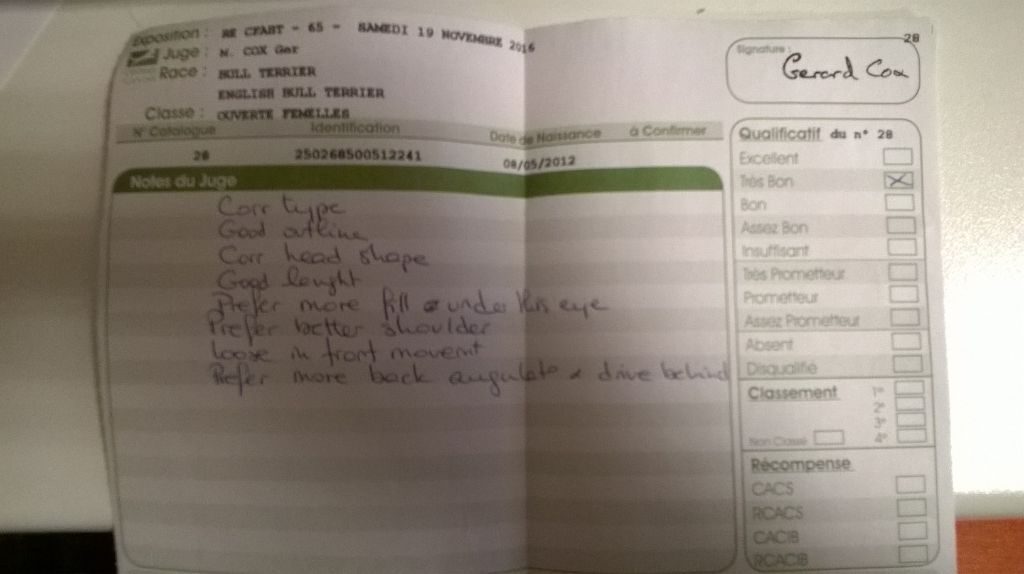 Exposition : RE CFABT - 65 - SAMEDI 19 NOVEMBRE 2016
Juge : M. COX Ger
Race : BULL TERRIER
ENGLISH BULL TERRIER
Classe : OUVERTE FEMELLES
28
Signature :
Gerard Cox
N° Catalogue Identification Date de Naissance à Confirmer
28 250268500512241 08/05/2012
Notes du Juge
Corr type
Good outline
Corr head shape
Good lenght
Prefer more fill under this eye
Prefer better shoulder
Loose in front movemt
Prefer more back angulato & drive behind
Qualificatif du n° 28
Excellent
Très Bon
Bon
Assez Bon
Insuffisant
Très Prometteur
Prometteur
Assez Prometteur
Absent
Disqualifié
Classement 1er
2e
3e
Non Classé 4e
Récompense
CACS
RCACS
CACIB
RCACIB